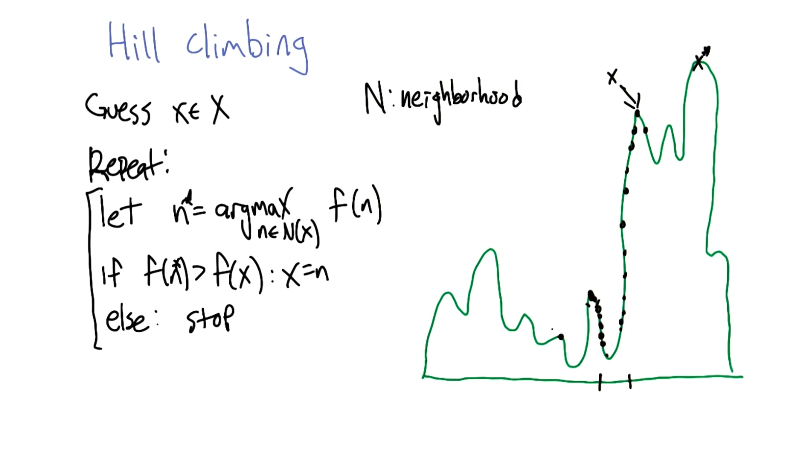 Hill climbing
Guess x ∈ X
N: neighborhood
Repeat:
let n* = argmax f(n)
n ∈ N(x)
if f(n*) > f(x): x = n
else: stop
x
x*